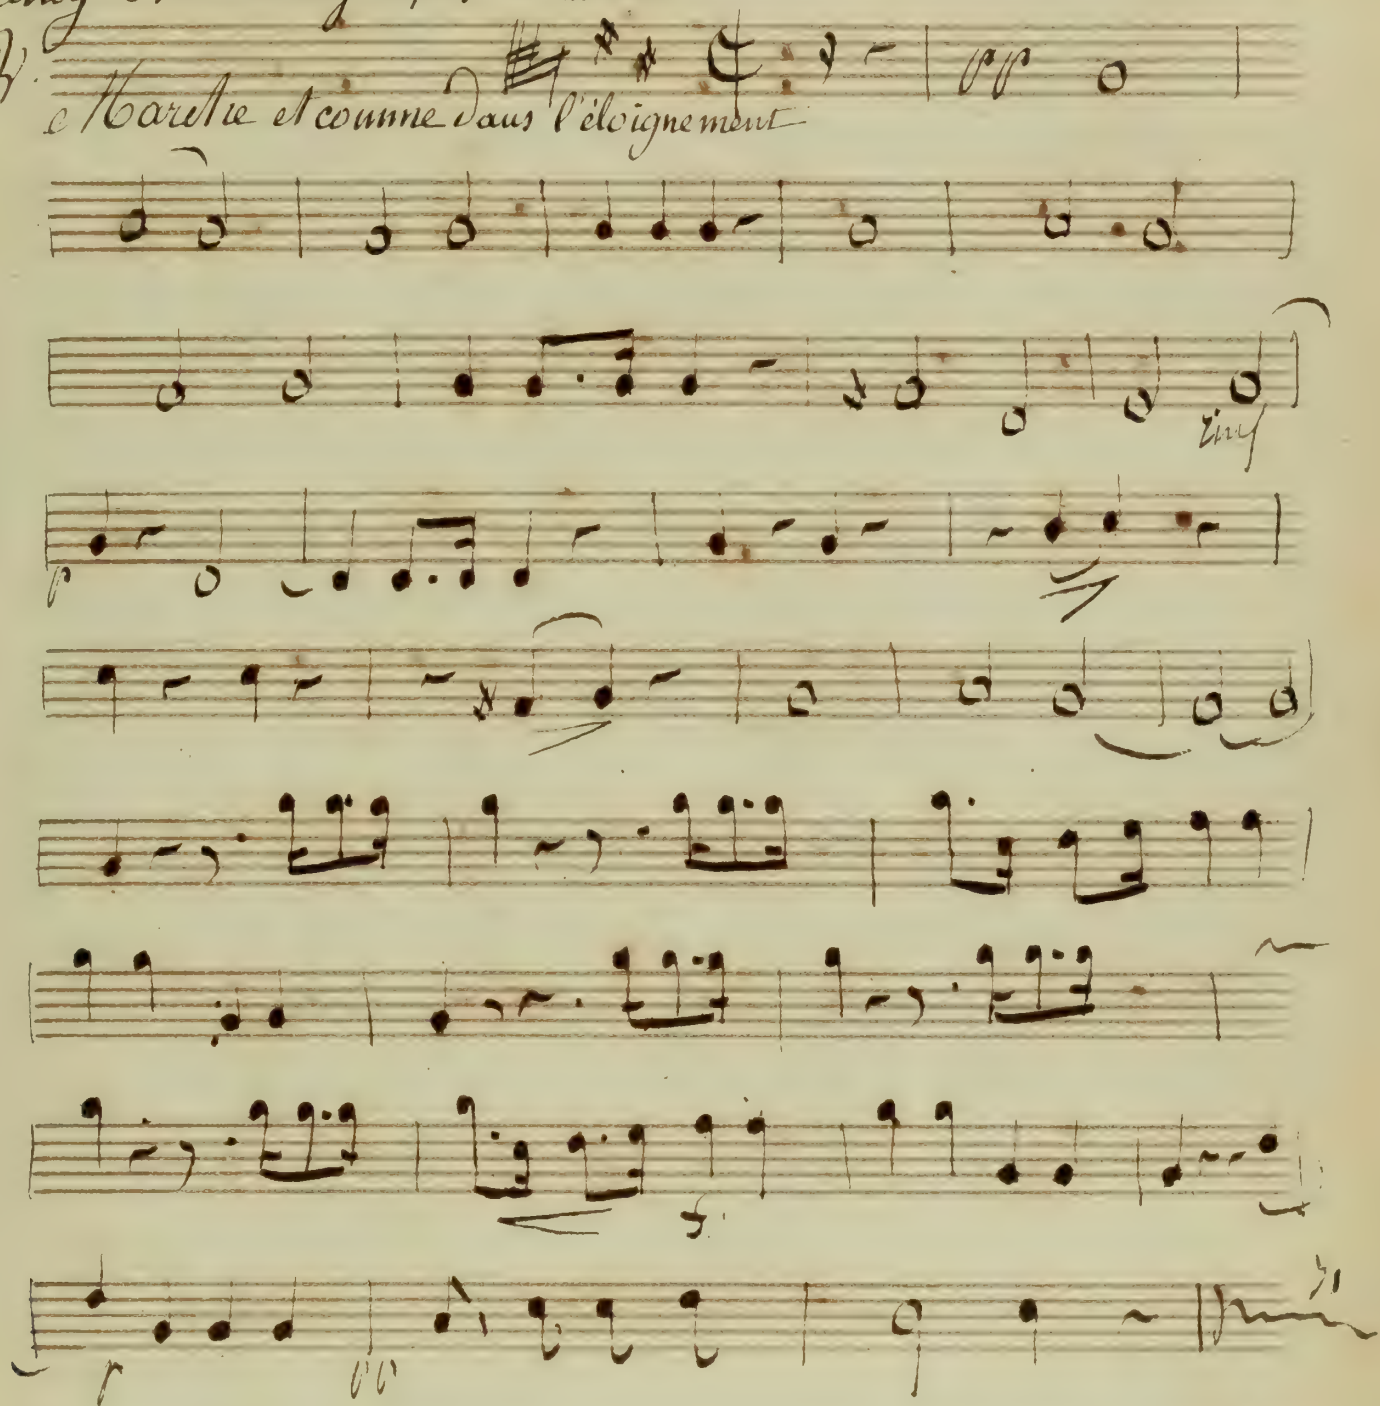 Marche et comme dans l'éloignement
pp
rinf
p
f.
p pp